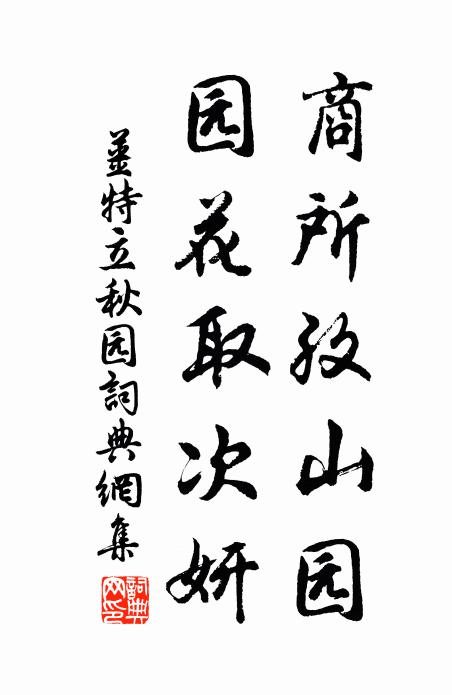 商所山园
园花取次妍
薑特立秋园詞典網集
詞典
网印